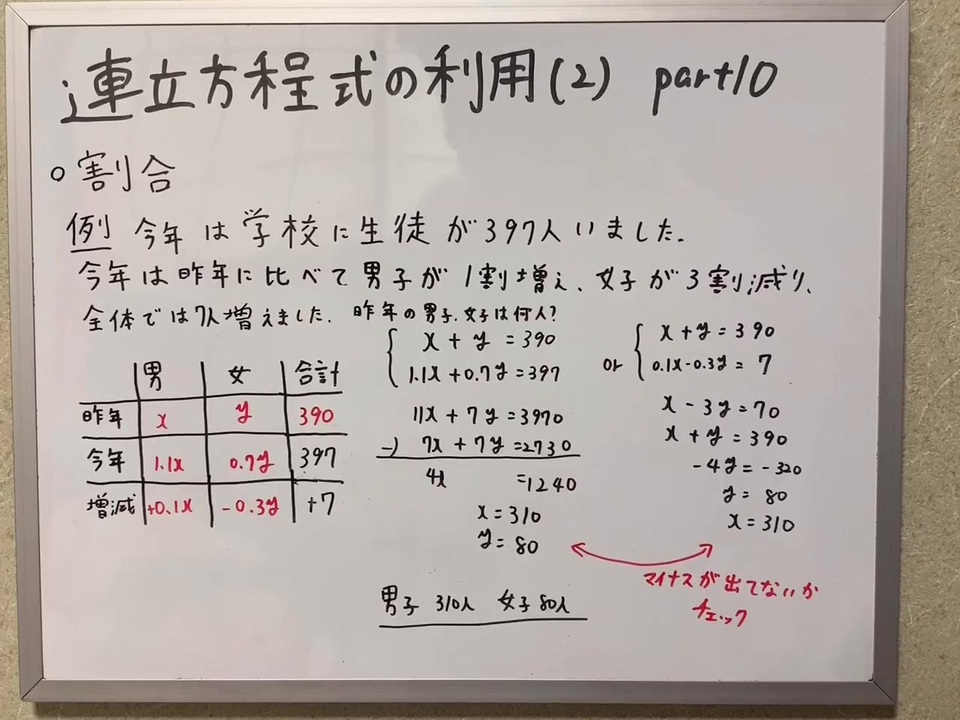 連立方程式の利用(2) part10
○割合
例 今年は学校に生徒が397人いました.
今年は昨年に比べて男子が1割増え、女子が3割減り、
全体では7人増えました. 昨年の男子.女子は何人?
男 女 合計
昨年 x y 390
今年 1.1x 0.7y 397
増減 +0.1x -0.3y +7
x + y = 390
1.1x+0.7y=397
11x + 7y =3970
-) 7x + 7y =2730
4x =1240
x=310
y=80
or
x+y=390
0.1x-0.3y=7
x-3y=70
x+y=390
-4y=-320
y=80
x=310
マイナスが出てないか
チェック
男子 310人 女子 80人